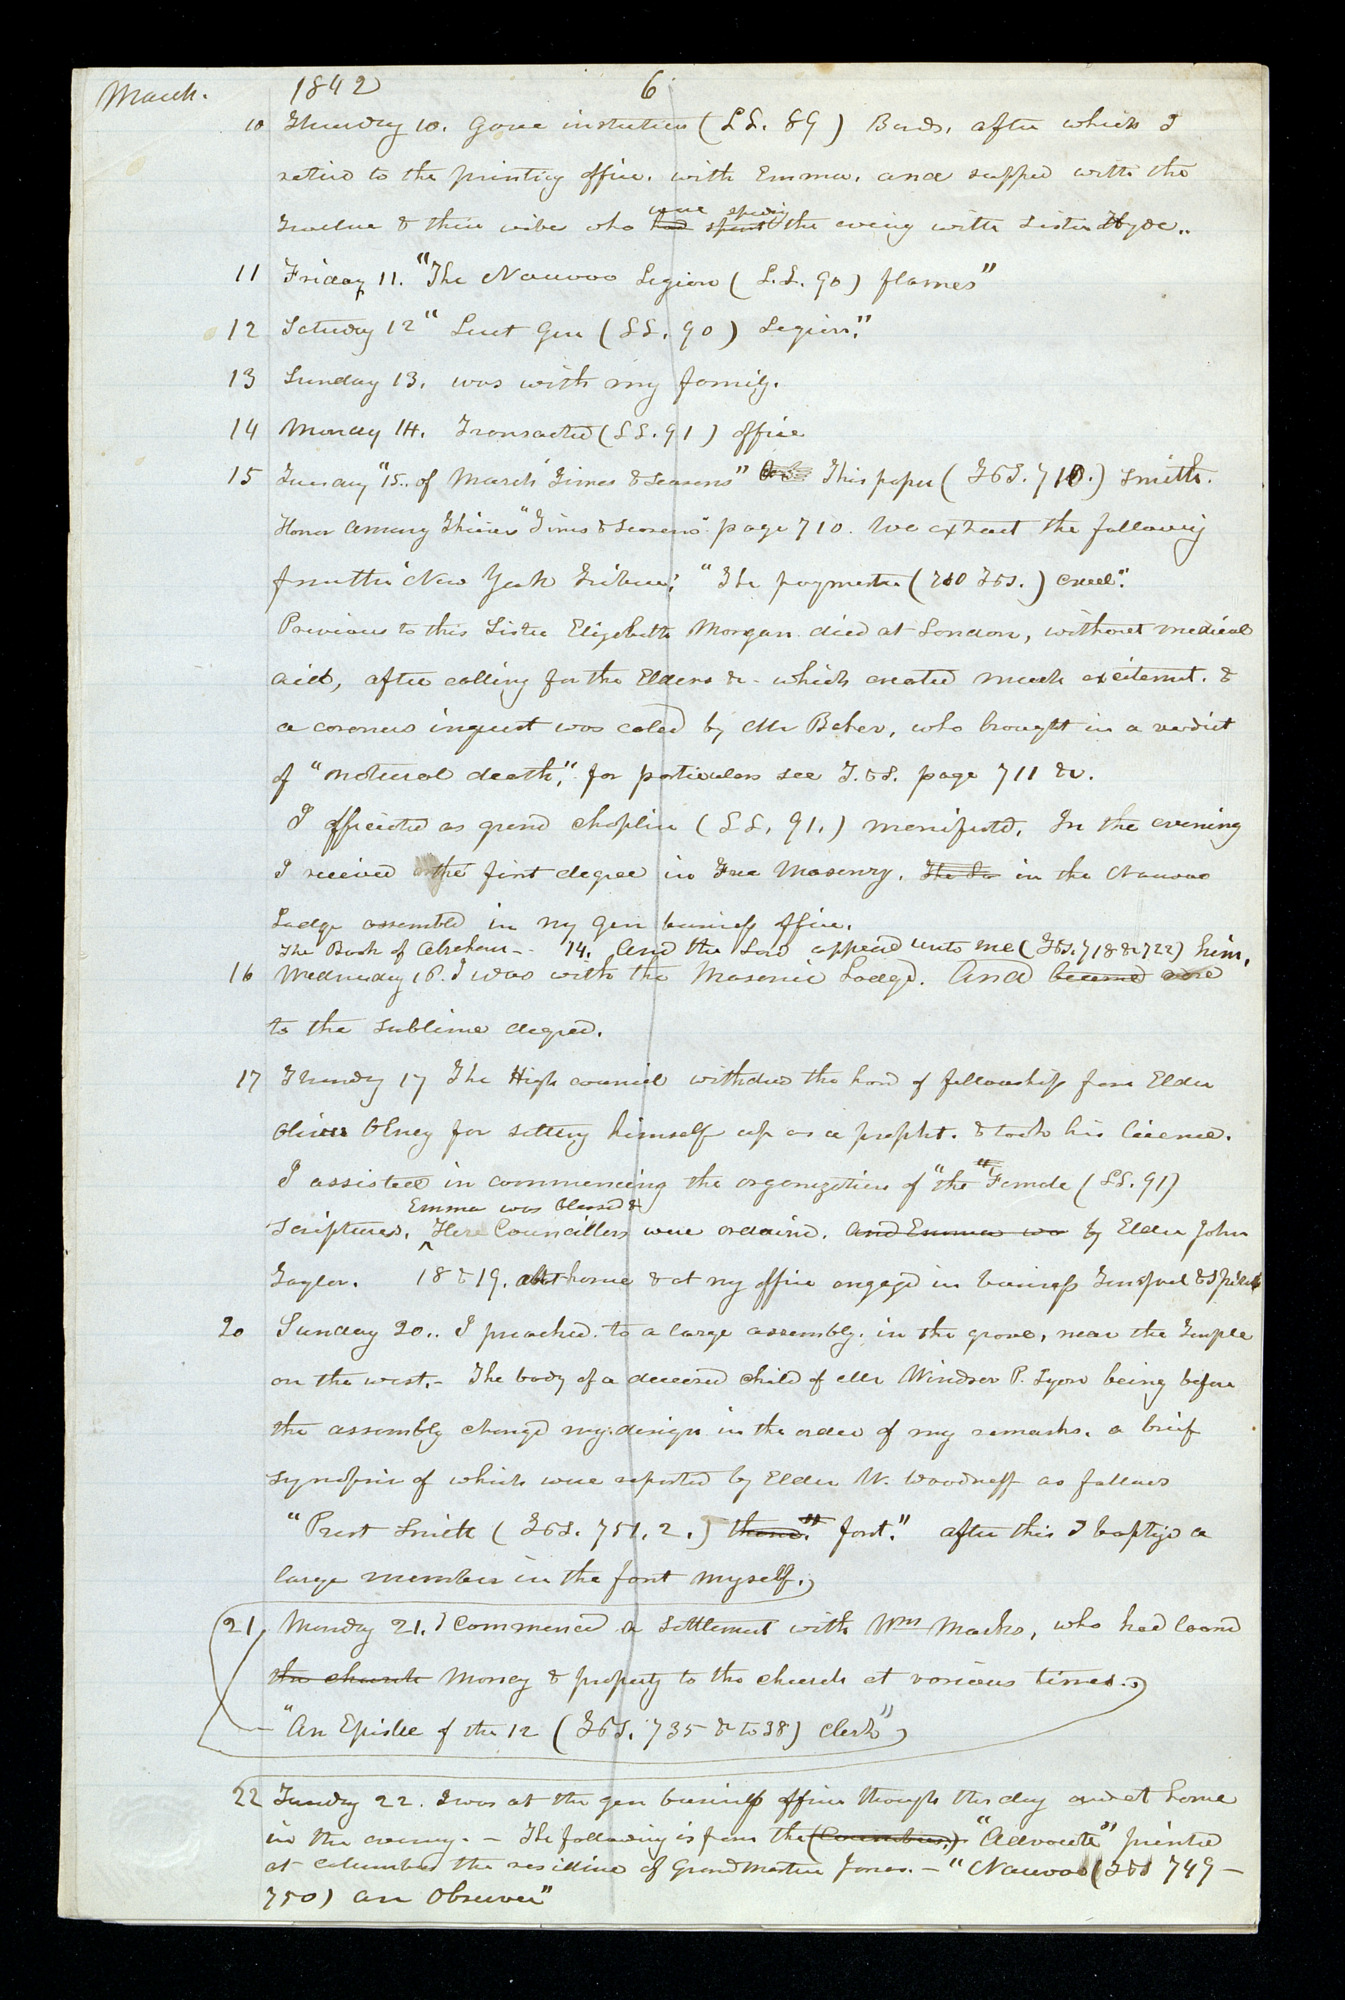 March. 1842 6
10 Thursday 10. Gave instruction (L L. 89) Bonds. after which I
retird to the printing office. with Emma. and supped with the
Twelve & thier wives who were spending the evening with Sister Hyde..
11 Friday 11. "The Nauvoo Legion (L.L. 90) flames"
12 Saturday 12 "Lieut Gen (L L. 90) Legion."
13 Sunday 13. was with my family.
14 Monday 14. Transacted (L L. 91) office
15 Tuesday "15.. of March Times & Seasons" This paper (T&S. 710.) Smith.
Honor Among Thieves "Times & Seasons" page 710. We extract the following
from the New York Tribune; "The paymaster (710 T&S.) creel".
Previous to this Sister Elizabeth Morgan died at London, without medical
aid, after calling for the Elders &c - which created much excitement. &
a coroners inquest was caled by Mr Baker, who brought in a verdict
of "natural death", for particulars see T.&S. page 711 &c.
I officiated as grand chaplin (L L. 91.) manifested. In the evening
I received the first degree in Free Masonry. The La in the Nauvoo
Lodge assembled in my gen business office.
The Book of Abraham - - 14. And the Lord appeard unto me (T&S. 718 & 722) him.
16 Wednesday 16. I was with the Masonic Lodge. And became rose
to the sublime degree.
17 Thursday 17 The High council withdrew the hand of fellowship from Elder
Oliver Olney for setting himself up as a prophet. & took his licence.
I assisted in commencing the organization of "the "Female (L L. 91)
Emma was blessed &
Scriptures. Here Councillors were ordained. and Emma wa by Elder John
Taylor. 18 & 19. at home & at my office engaged in business Temporal & Spiritual
20 Sunday 20.. I preached. to a large assembly. in the grove, near the Temple
on the west.- The body of a deceased child of Mr Windsor P. Lyon being before
the assembly changed my design in the order of my remarks. a brief
synopsis of which were reported by Elder W. Woodruff as follows
"Prest Smith (T&S. 751. 2.) them." font." after this I baptized a
large members in the font myself.)
21 Monday 21. I Commenced a settlement with Wm Marks, who had loand
the church money & property to the church at various times..)
"An Epistle of the 12 (T&S. 735 & to 38) clerk")
22 Tuesday 22. I was at the gen business office through the day and at home
in the evening. - The following is from the (Columbus.) "Advocate" printed
at Columbus the residence of Grand Master Jonas. - "Nauvoo (T&S 749 -
750) an Observer"